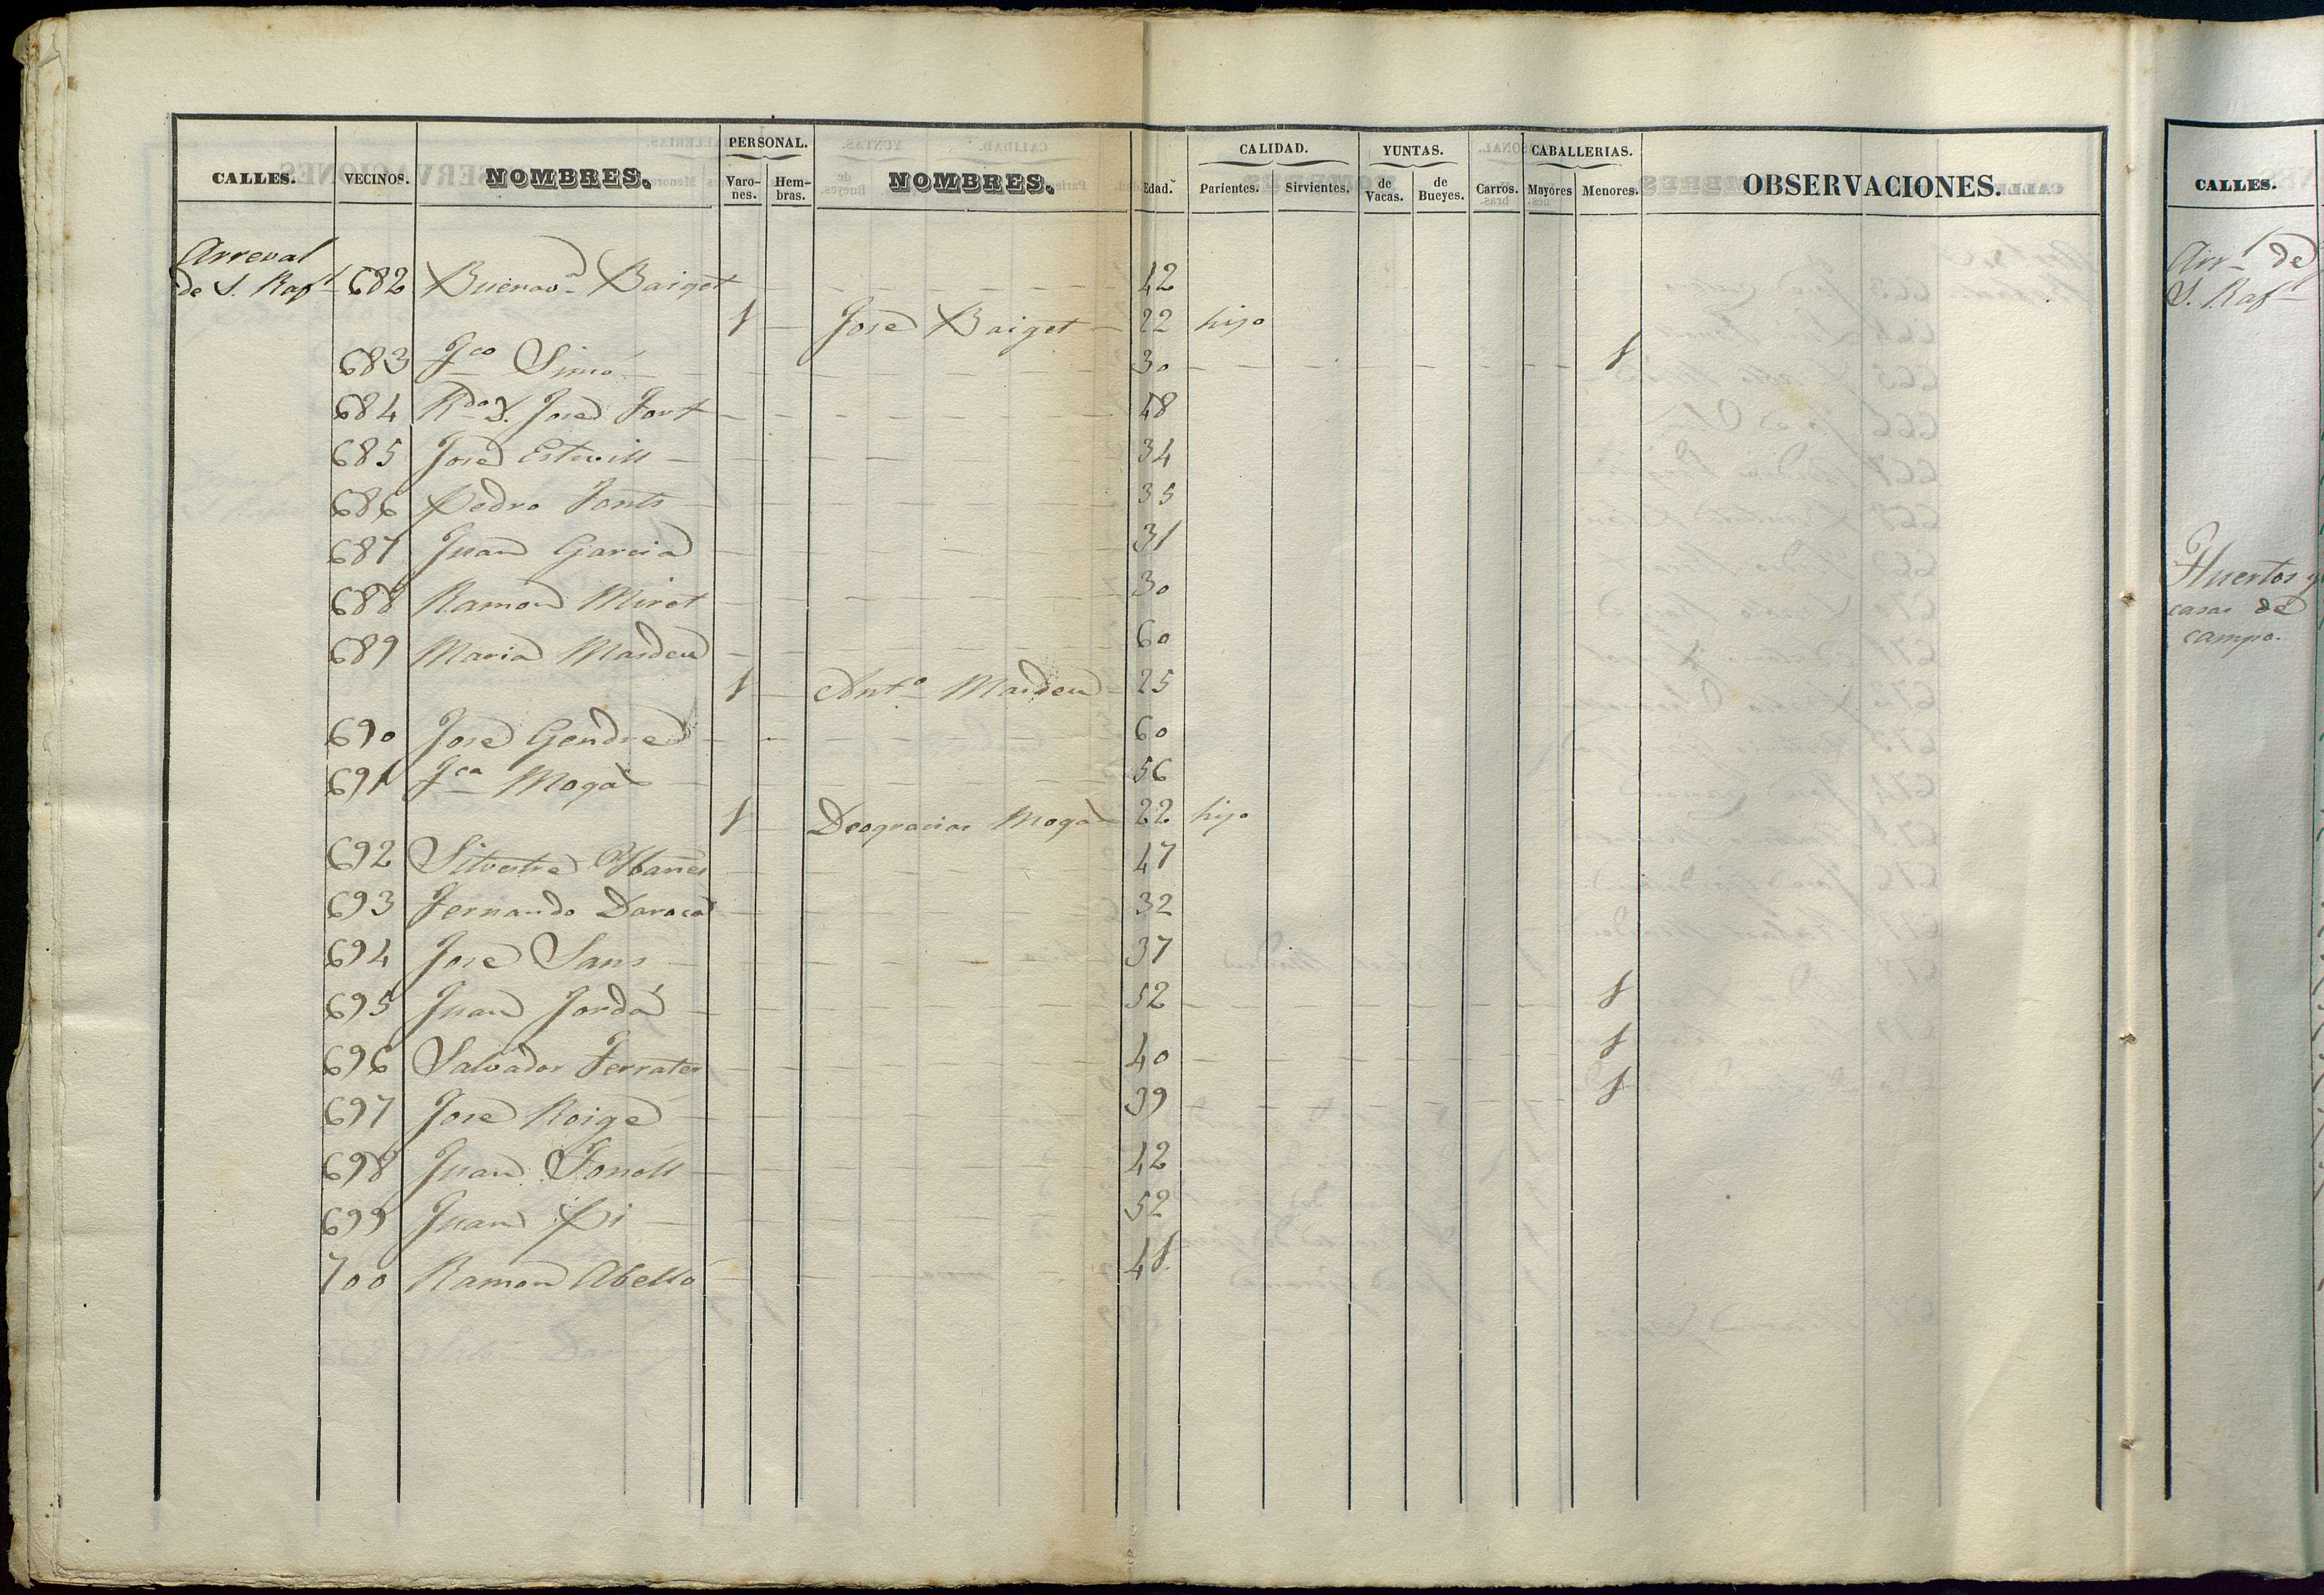 CALLES. VECINOS. NOMBRES. PERSONAL. Varones. Hembras. NOMBRES. Edad.ˢ CALIDAD. Parientes. Sirvientes. YUNTAS. de Vacas. de Bueyes. Carros. CABALLERIAS. Mayores Menores. OBSERVACIONES.
Arreval
de S. Raf.l 682 Buenav.a Baiget 42
1 José Baiget 22 hijo
683 Fco Simó 30 1
684 Rdo D. José Fort 48
685 José Estivill 34
686 Pedro Fonts 35
687 Juan Garcia 31
688 Ramon Mirot 30
689 Maria Masdeu 60
1 Ant.o Masdeu 25
690 José Gendre 60
691 Fca Mogas 56
1 Deogracias Mogas 22 hijo
692 Silvestre Ybañes 47
693 Fernando Daroca 32
694 José Sans 37
695 Juan Jordá 52 1
696 Salvador Ferrater 40 1
697 José Roigé 39 1
698 Juan Fonoll 42
699 Juan Pi 52
700 Ramon Abelló 41
CALLES.
Arr.l de
S. Raf.l
Huertos y
casas de
campo.